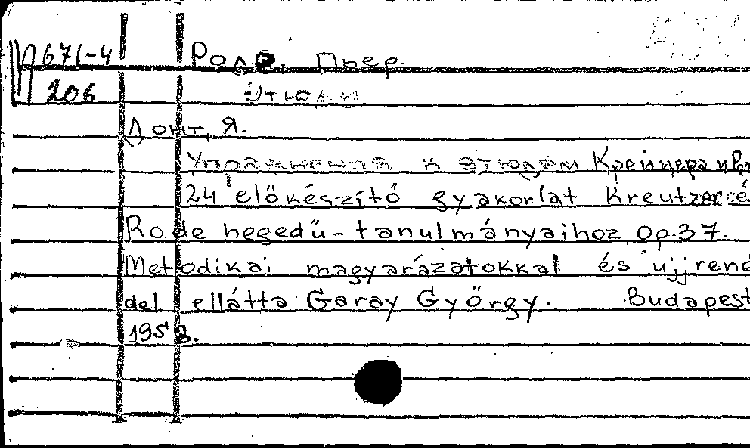 П671-4 Роде, Пьер
206 Этюды
Донт, Я.
Упражнения к этюдам Крейцера и
24 előkészitő gyakorlat Kreutzer é
Rode hegedű-tanulmányaihoz Op.37.
Metodikai magyarázatokkal és ujjrend
del ellátta Garay György. Budapest
195